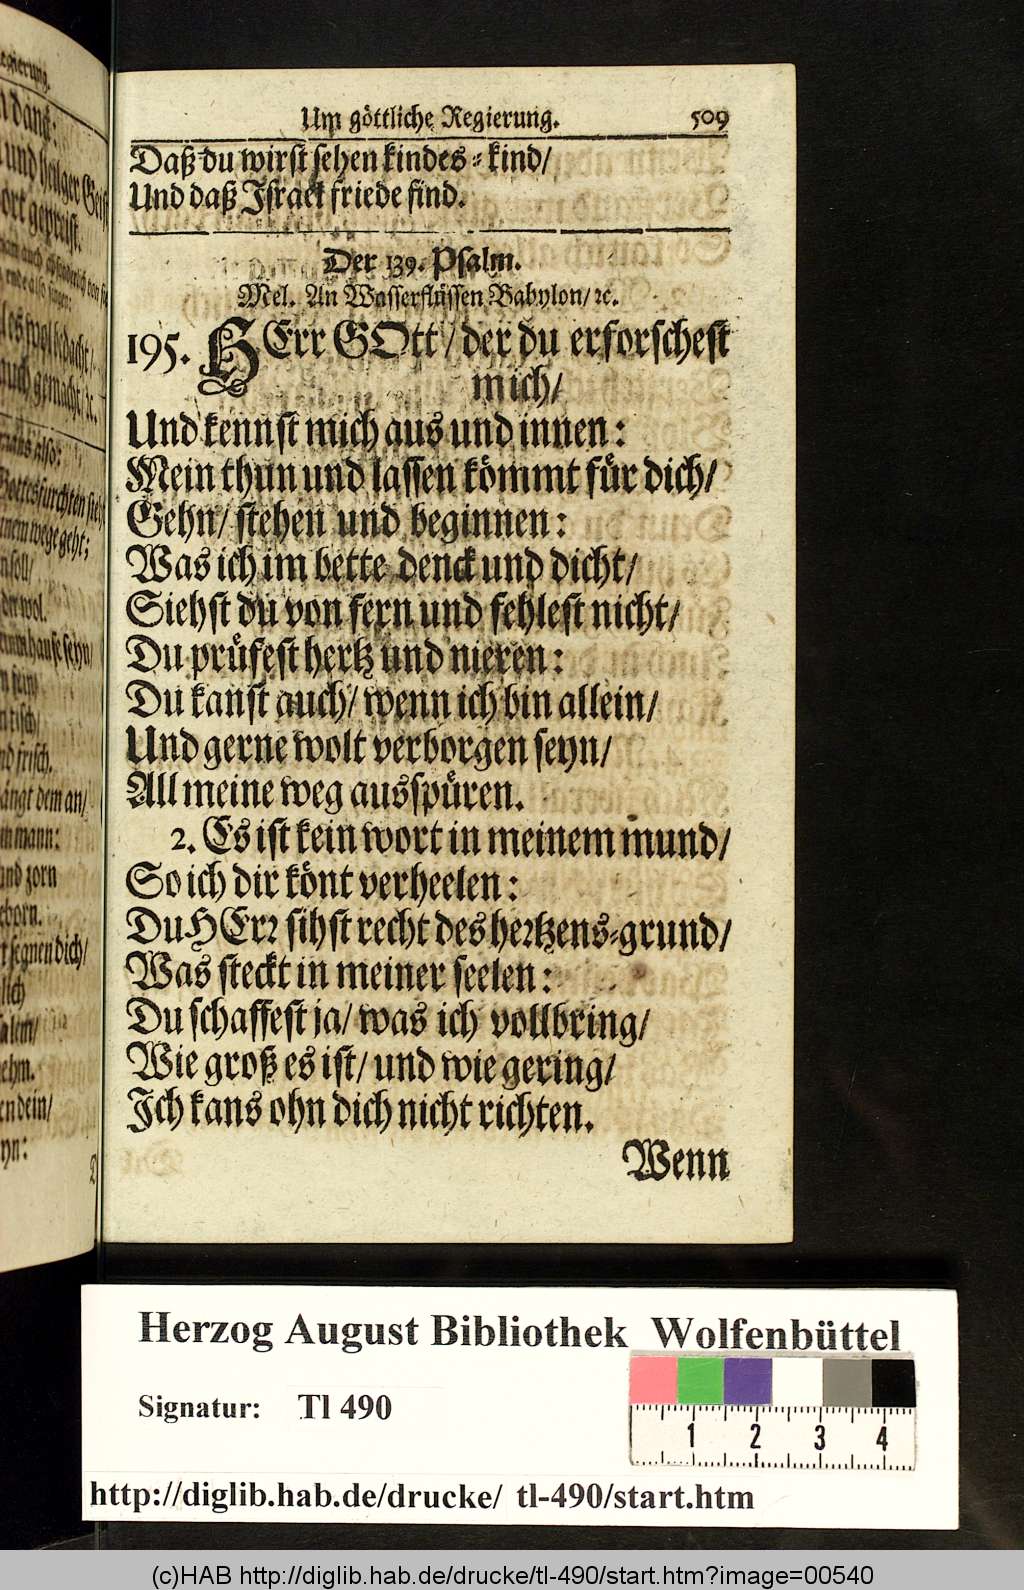 Um göttliche Regierung. 509
Daß du wirst sehen kindes-kind/
Und daß Israel friede find.
Der 139. Psalm.
Mel. An Wasserflüssen Babylon/ ꝛc.
195. HErr GOtt/ der du erforschest
mich/
Und kennst mich aus und innen:
Mein thun und lassen kömmt für dich/
Gehn/ stehen und beginnen:
Was ich im bette denck und dicht/
Siehst du von fern und fehlest nicht/
Du prüfest hertz und nieren:
Du kanst auch/ wenn ich bin allein/
Und gerne wolt verborgen seyn/
All meine weg ausspüren.
2. Es ist kein wort in meinem mund/
So ich dir könt verheelen:
Du HErr sihst recht des hertzens-grund/
Was steckt in meiner seelen:
Du schaffest ja/ was ich vollbring/
Wie groß es ist/ und wie gering/
Ich kans ohn dich nicht richten.
Wenn
Herzog August Bibliothek Wolfenbüttel
Signatur: Tl 490
1 2 3 4
http://diglib.hab.de/drucke/ tl-490/start.htm
(c)HAB http://diglib.hab.de/drucke/tl-490/start.htm?image=00540